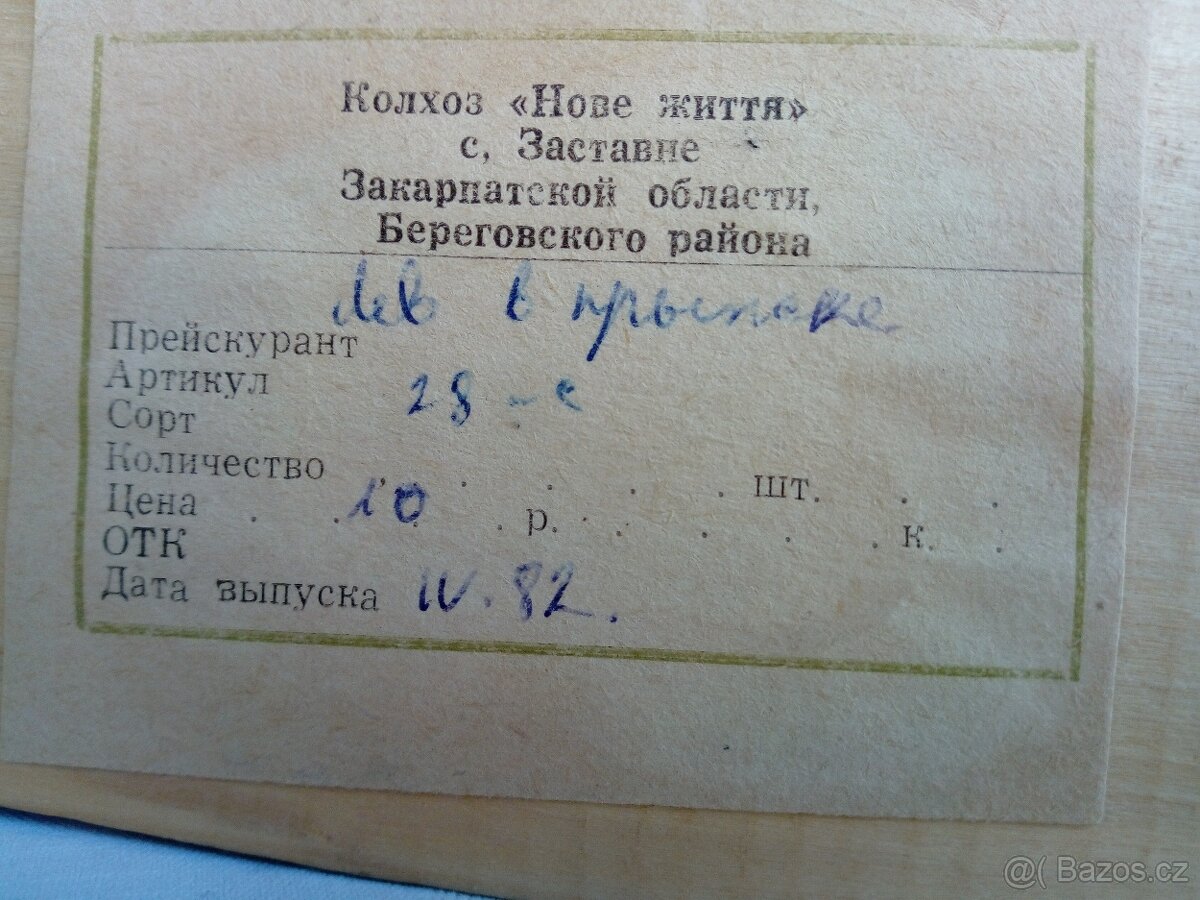 Колхоз «Нове життя»
с, Заставне
Закарпатской области,
Береговского района
Лев в прыжке
Прейскурант
Артикул 28-с
Сорт
Количество . . . . . шт. . .
Цена . . 10 . р. . . . . к. .
ОТК
Дата выпуска IV. 82.
@( Bazos.cz